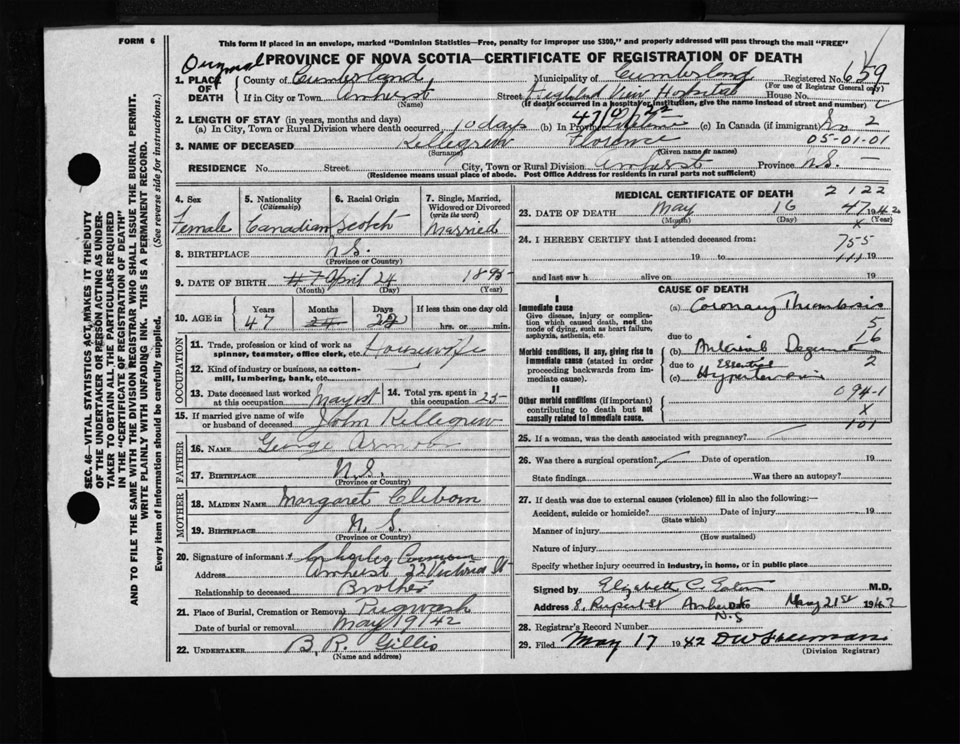 FORM 6
This form if placed in an envelope, marked "Dominion Statistics—Free, penalty for improper use $300," and properly addressed will pass through the mail "FREE"
Original
PROVINCE OF NOVA SCOTIA—CERTIFICATE OF REGISTRATION OF DEATH
1. PLACE OF DEATH County of Cumberland Municipality of Cumberland Registered No. 659
(For use of Registrar General only)
If in City or Town Amherst Street Highland View Hospital House No.
(Name) (If death occurred in a hospital or institution, give the name instead of street and number)
2. LENGTH OF STAY (in years, months and days)
(a) In City, Town or Rural Division where death occurred 10 days (b) In Province (c) In Canada (if immigrant)
3. NAME OF DECEASED Kellegrew Florence 05-01-01
(Surname) (Given name or names)
RESIDENCE No. Street City, Town or Rural Division Amherst Province N.S.
(Residence means usual place of abode. Post Office Address for residents in rural parts not sufficient)
4. Sex Female
5. Nationality (Citizenship) Canadian
6. Racial Origin Scotch
7. Single, Married, Widowed or Divorced (write the word) Married
8. BIRTHPLACE N.S.
(Province or Country)
9. DATE OF BIRTH April 24 1895
(Month) (Day) (Year)
10. AGE in Years 47 Months Days 22 If less than one day old
hrs. or min.
OCCUPATION
11. Trade, profession or kind of work as spinner, teamster, office clerk, etc. Housewife
12. Kind of industry or business, as cotton-mill, lumbering, bank, etc.
13. Date deceased last worked at this occupation May 1st 14. Total yrs. spent in this occupation 25
15. If married give name of wife or husband of deceased John Kellegrew
FATHER
16. NAME George
17. BIRTHPLACE N.S.
(Province or Country)
MOTHER
18. MAIDEN NAME Margaret
19. BIRTHPLACE N.S.
(Province or Country)
20. Signature of informant Charles
Address Amherst 22 Victoria St
Relationship to deceased Brother
21. Place of Burial, Cremation or Removal Pugwash
Date of burial or removal May 19/42
22. UNDERTAKER B. R. Gillis
(Name and address)
MEDICAL CERTIFICATE OF DEATH 2122
23. DATE OF DEATH May 16 1942
(Month) (Day) (Year)
24. I HEREBY CERTIFY that I attended deceased from: 755
19 to 19
and last saw h alive on 19
CAUSE OF DEATH
I
Immediate cause (a) Coronary Thrombosis
Give disease, injury or complication which caused death, not the mode of dying, such as heart failure, asphyxia, asthenia, etc.
5
due to 16
Morbid conditions, if any, giving rise to immediate cause (stated in order proceeding backwards from immediate cause). (b)
due to Essential 2
(c) Hypertension
II
094-1
Other morbid conditions (if important) contributing to death but not causally related to immediate cause. X
101
25. If a woman, was the death associated with pregnancy?
26. Was there a surgical operation? Date of operation 19
State findings Was there an autopsy?
27. If death was due to external causes (violence) fill in also the following:—
Accident, suicide or homicide? Date of injury 19
(State which)
Manner of injury
(How sustained)
Nature of injury
Specify whether injury occurred in industry, in home, or in public place
Signed by Elizabeth C. Eaton M.D.
Address 8 Rupert St Amherst Date May 21st 1942
N.S
28. Registrar's Record Number
29. Filed May 17 1942
(Division Registrar)
SEC. 46—VITAL STATISTICS ACT, MAKES IT THE DUTY OF THE UNDERTAKER OR PERSON ACTING AS UNDERTAKER TO OBTAIN ALL THE PARTICULARS REQUIRED IN THE "CERTIFICATE OF REGISTRATION OF DEATH"
AND TO FILE THE SAME WITH THE DIVISION REGISTRAR WHO SHALL ISSUE THE BURIAL PERMIT.
WRITE PLAINLY WITH UNFADING INK. THIS IS A PERMANENT RECORD.
Every item of information should be carefully supplied. (See reverse side for instructions.)